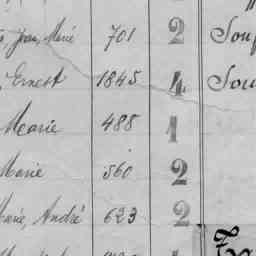 Jean, Marie 701 2
Ernest 1845 4
Marie 488 1
Marie 560 2
Marie, André 623 2